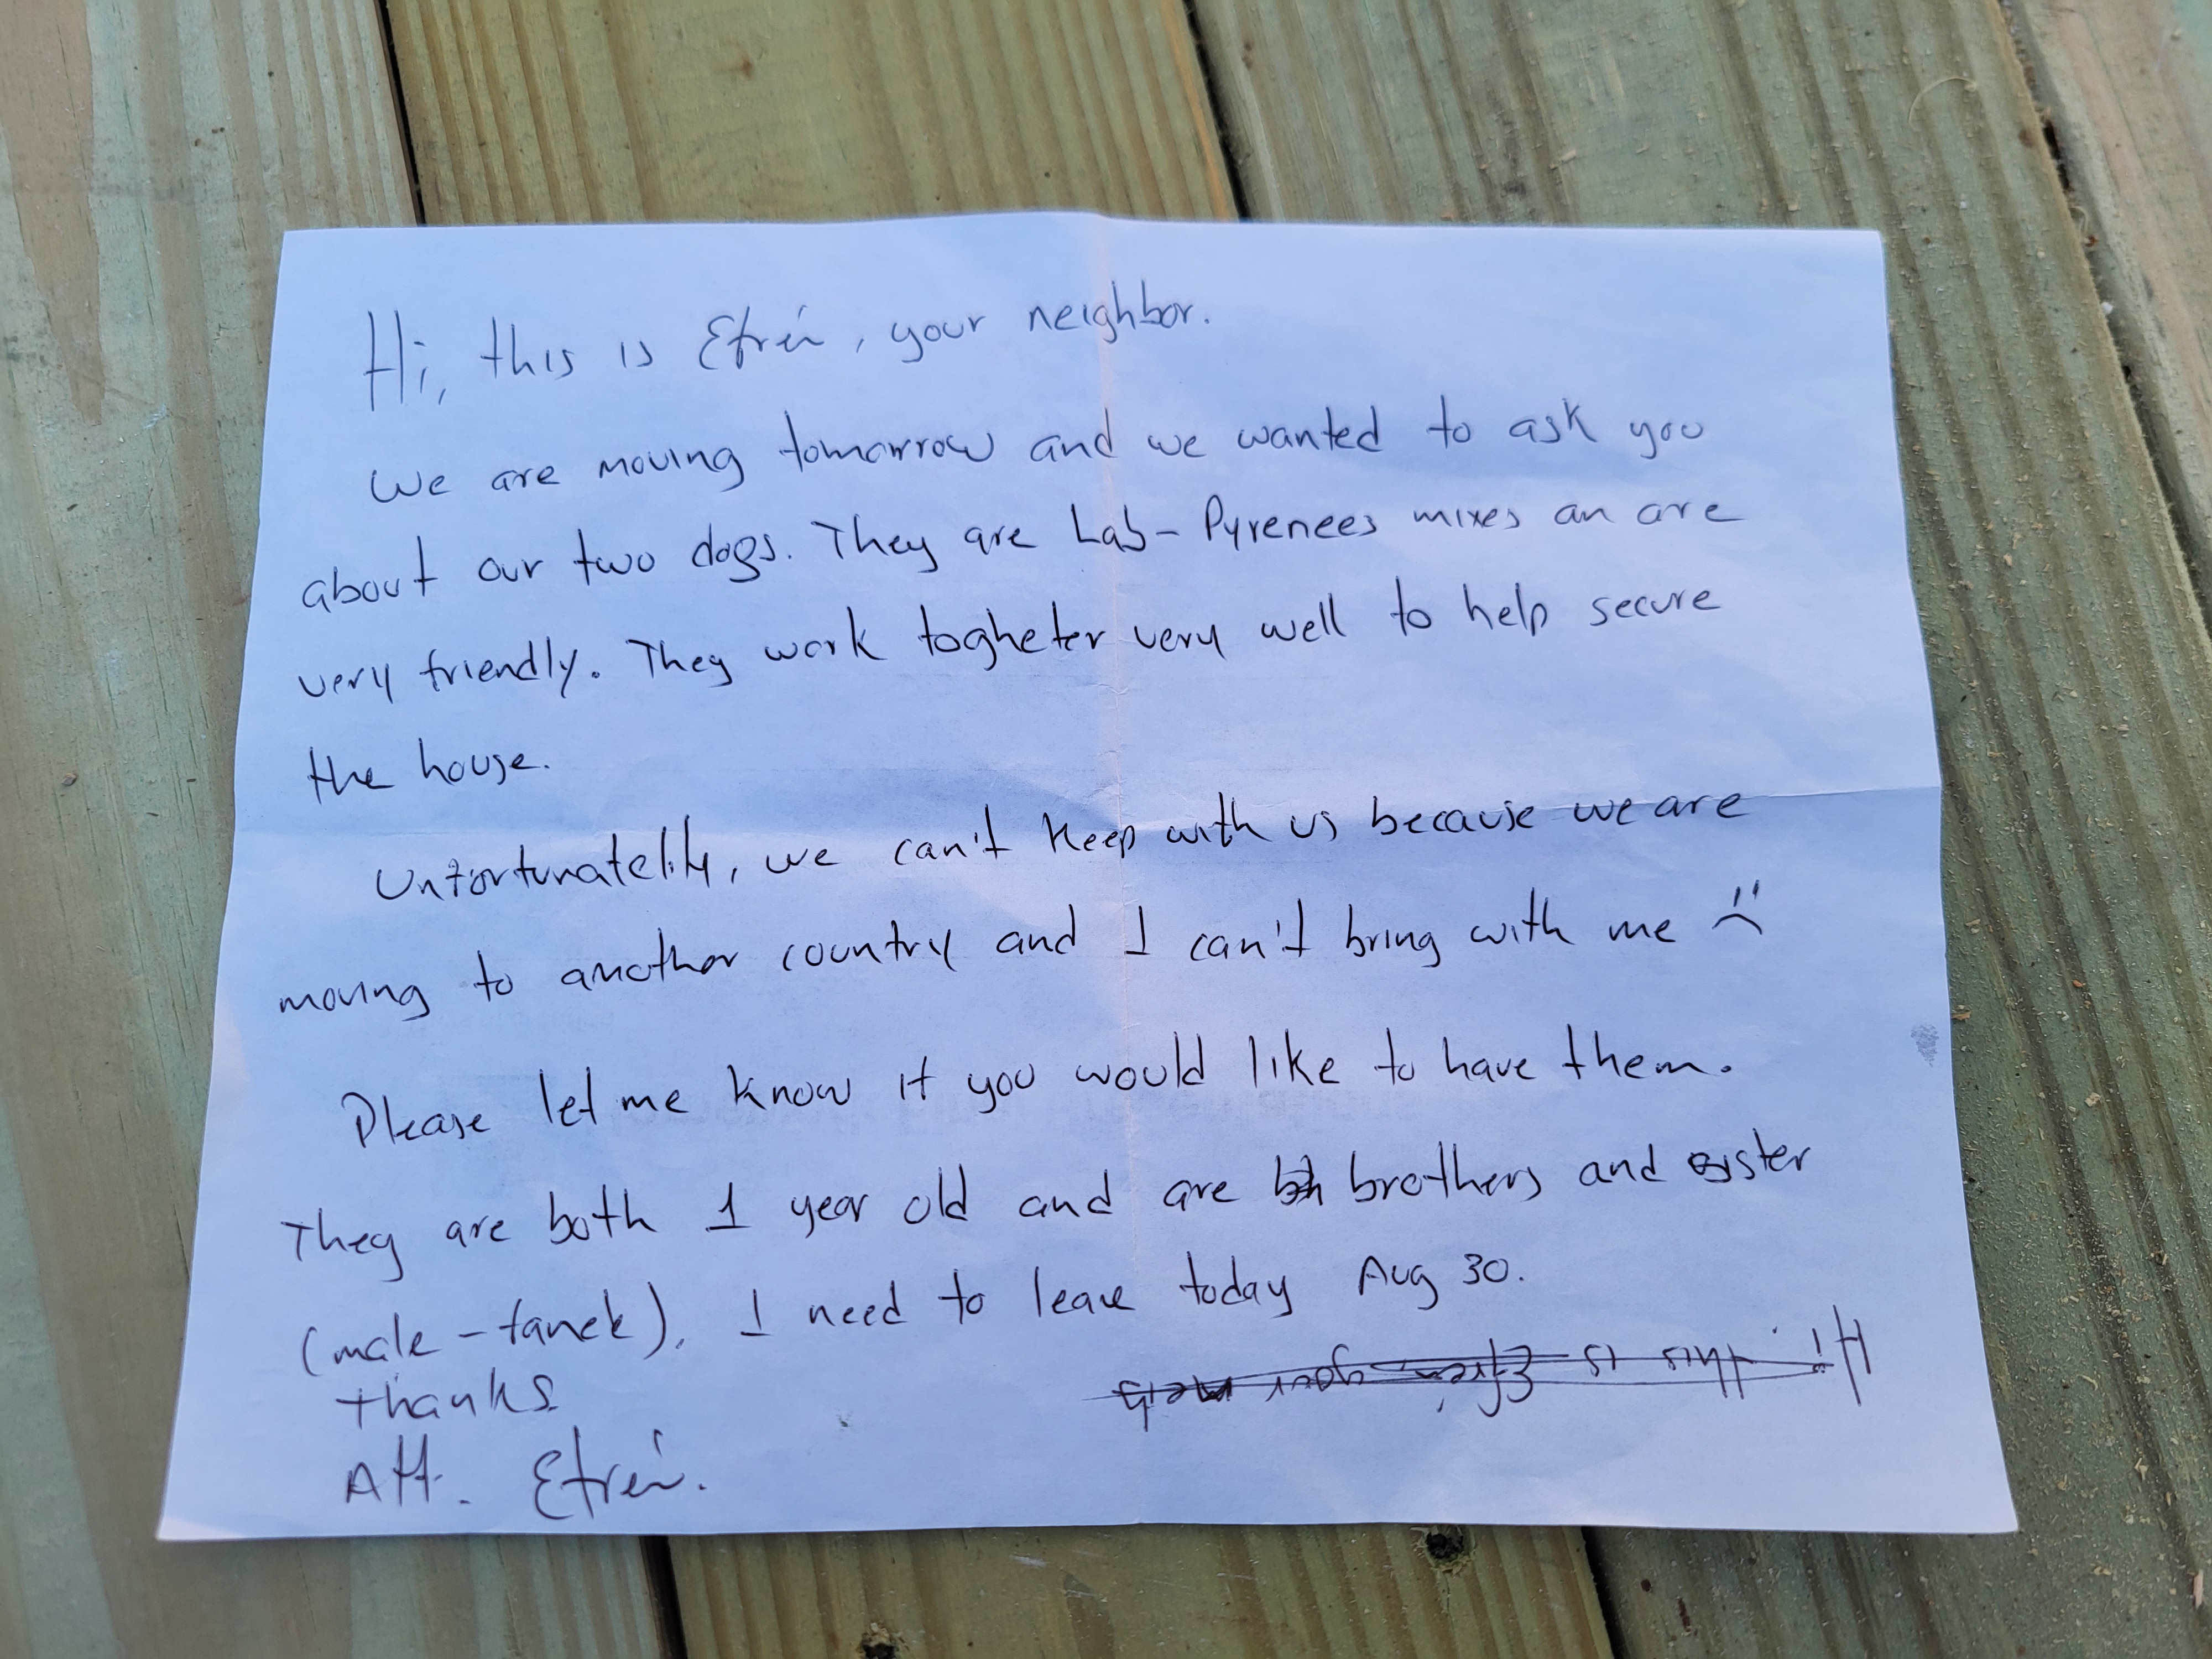 Hi, this is Efrén, your neighbor.
We are moving tomorrow and we wanted to ask you
about our two dogs. They are Lab-Pyrenees mixes an are
very friendly. They work togheter very well to help secure
the house.
Unfortunatelily, we can't keep with us because we are
moving to another country and I can't bring with me :(
Please let me know if you would like to have them.
They are both 1 year old and are brothers and sister
(male - famele). I need to leave today Aug 30.
Thanks.
Att. Efrén.
Hi, this is Efren, your neib